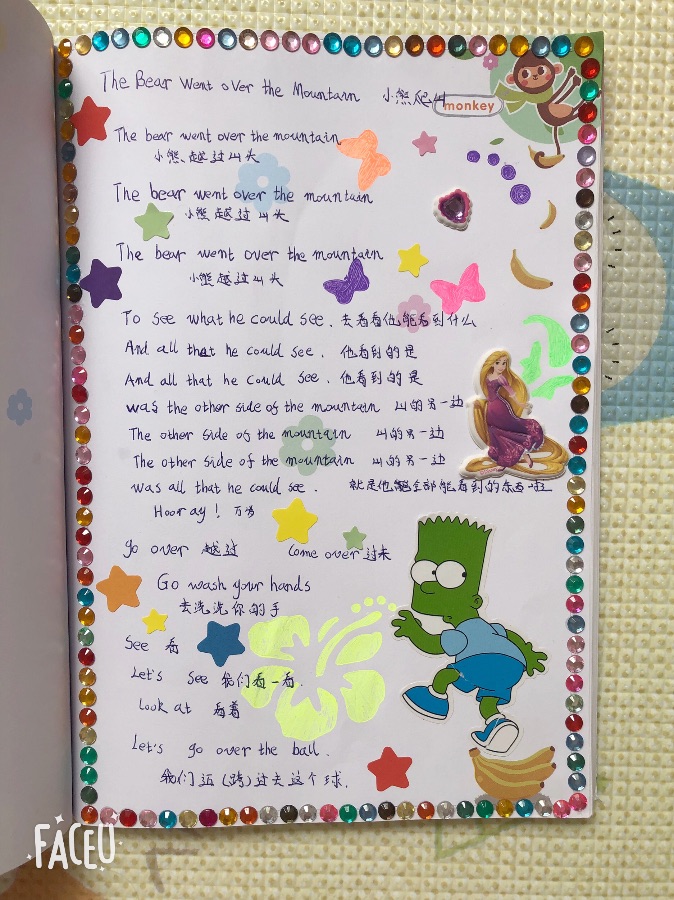 The Bear Went over the Mountain 小熊爬山
monkey
The bear went over the mountain
小熊越过山头
The bear went over the mountain
小熊越过山头
The bear went over the mountain
小熊越过山头
To see what he could see. 去看看他能看到什么
And all that he could see. 他看到的是
And all that he could see. 他看到的是
was the other side of the mountain 山的另一边
The other side of the mountain 山的另一边
The other side of the mountain 山的另一边
was all that he could see. 就是他全部能看到的东西啦
Hooray! 万岁
go over 越过 Come over 过来
Go wash your hands
去洗洗你的手
See 看
Let's see 我们看一看.
Look at 看着
Let's go over the ball.
我们迈(跨)过去这个球.
FACEU